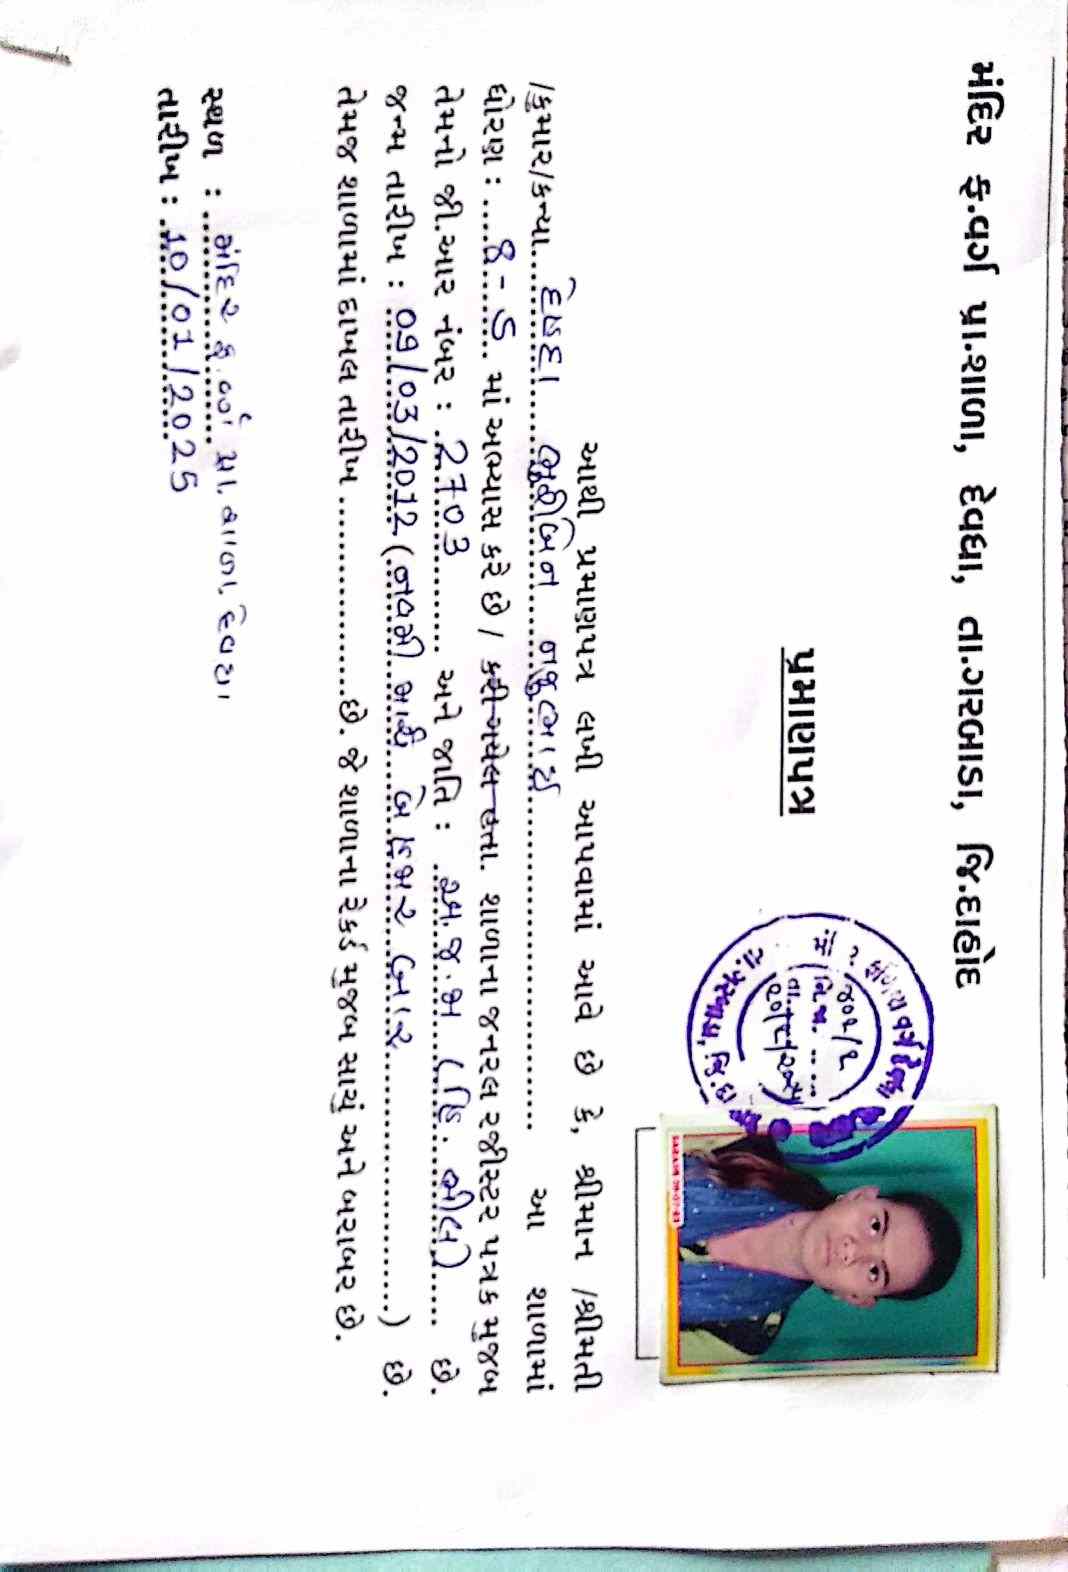 મંદિર ફ.વર્ગ પ્રા.શાળા, દેવધા, તા.ગરબાડા, જિ.દાહોદ
પ્રમાણપત્ર
આથી પ્રમાણપત્ર લખી આપવામાં આવે છે કે, શ્રીમાન /શ્રીમતી
/કુમાર/કન્યા.... દેહદા નજુભાઈ .... આ શાળામાં
ધોરણ : .... 8 - .... માં અભ્યાસ કરે છે / કરી ગયેલ હતા. શાળાના જનરલ રજીસ્ટર પત્રક મુજબ
તેમનો જી.આર નંબર : .. 2703 .... અને જાતિ : .. અ.જ.જ (હિ. ભીલ) .... છે.
જન્મ તારીખ : 09/03/2012 (નવમી માર્ચ બે હજાર બાર ....) છે.
તેમજ શાળામાં દાખલ તારીખ .................... છે. જે શાળાના રેકર્ડ મુજબ સાચું અને બરાબર છે.
સ્થળ : .. મંદિર ફ.વર્ગ પ્રા.શાળા, દેવધા
તારીખ : .. 10/01/2025